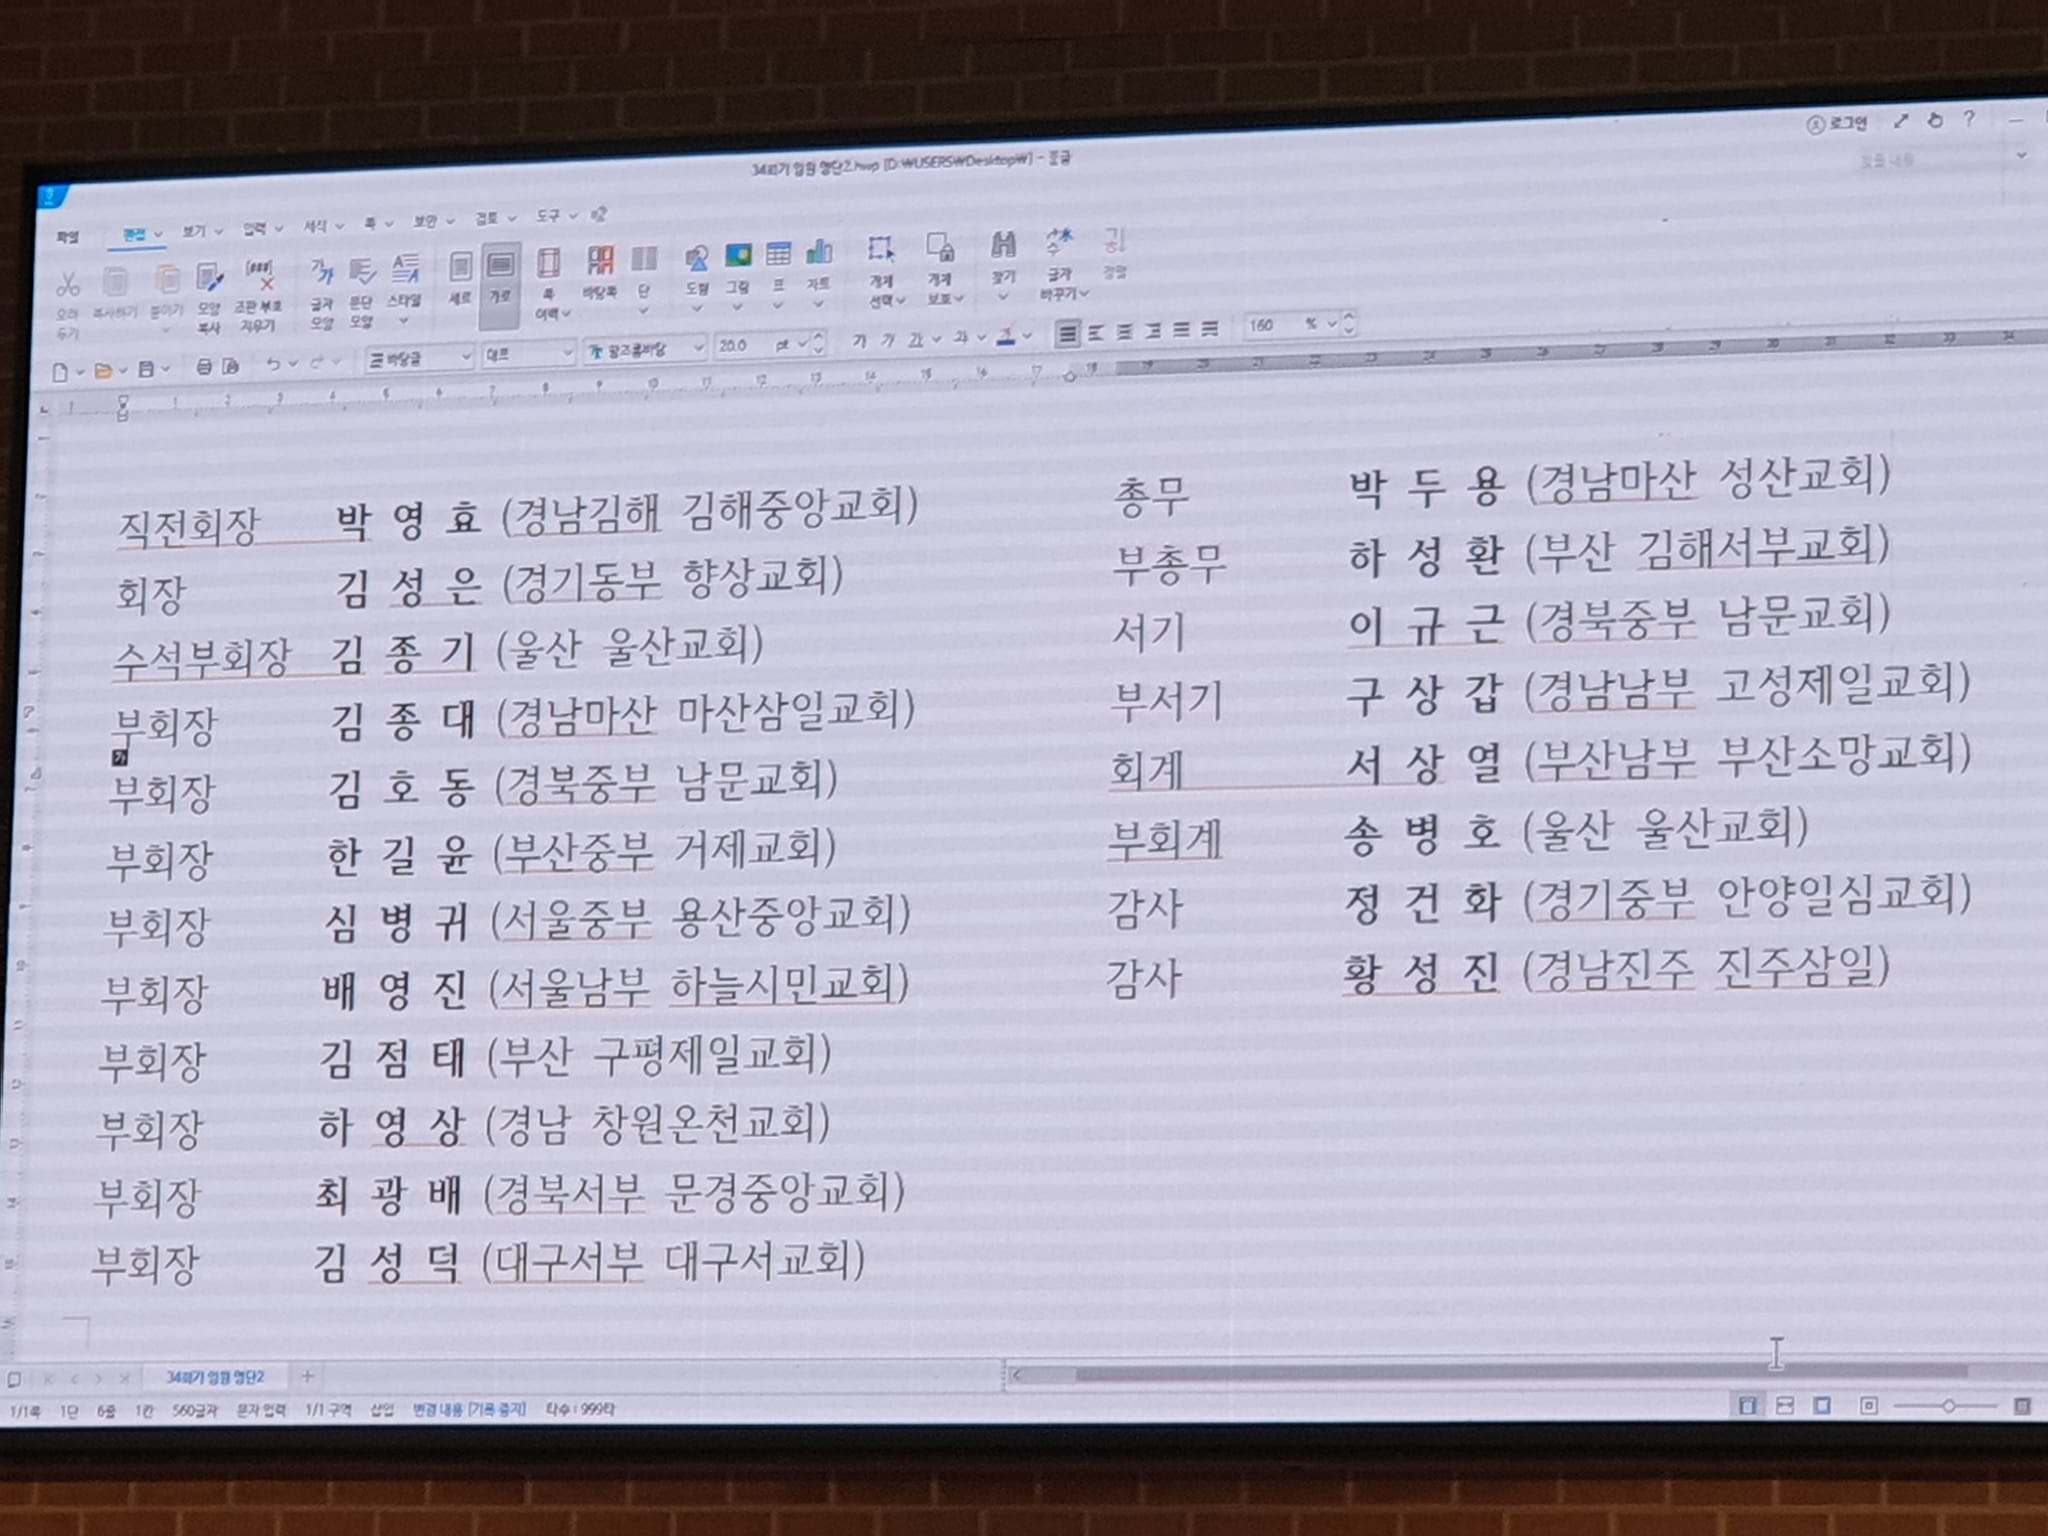 34회기 임원 명단2.hwp [D:\USERS\Desktop\] - 한글
로그인
찾을 내용
파일 편집 보기 입력 서식 쪽 보안 검토 도구
오려 두기 복사하기 붙이기 모양 복사 조판 부호 지우기 글자 모양 문단 모양 스타일 세로 가로 쪽 여백 바탕쪽 단 도형 그림 표 차트 개체 선택 개체 보호 찾기 글자 바꾸기 정렬
바탕글 대표 함초롬바탕 20.0 pt 160 %
직전회장 박 영 효 (경남김해 김해중앙교회)
회장 김 성 은 (경기동부 향상교회)
수석부회장 김 종 기 (울산 울산교회)
부회장 김 종 대 (경남마산 마산삼일교회)
부회장 김 호 동 (경북중부 남문교회)
부회장 한 길 윤 (부산중부 거제교회)
부회장 심 병 귀 (서울중부 용산중앙교회)
부회장 배 영 진 (서울남부 하늘시민교회)
부회장 김 점 태 (부산 구평제일교회)
부회장 하 영 상 (경남 창원온천교회)
부회장 최 광 배 (경북서부 문경중앙교회)
부회장 김 성 덕 (대구서부 대구서교회)
총무 박 두 용 (경남마산 성산교회)
부총무 하 성 환 (부산 김해서부교회)
서기 이 규 근 (경북중부 남문교회)
부서기 구 상 갑 (경남남부 고성제일교회)
회계 서 상 열 (부산남부 부산소망교회)
부회계 송 병 호 (울산 울산교회)
감사 정 건 화 (경기중부 안양일심교회)
감사 황 성 진 (경남진주 진주삼일)
34회기 임원 명단2
1/1쪽 1단 6줄 1칸 560글자 문자 입력 1/1 구역 삽입 변경 내용 [기록 중지] 타수 : 999타